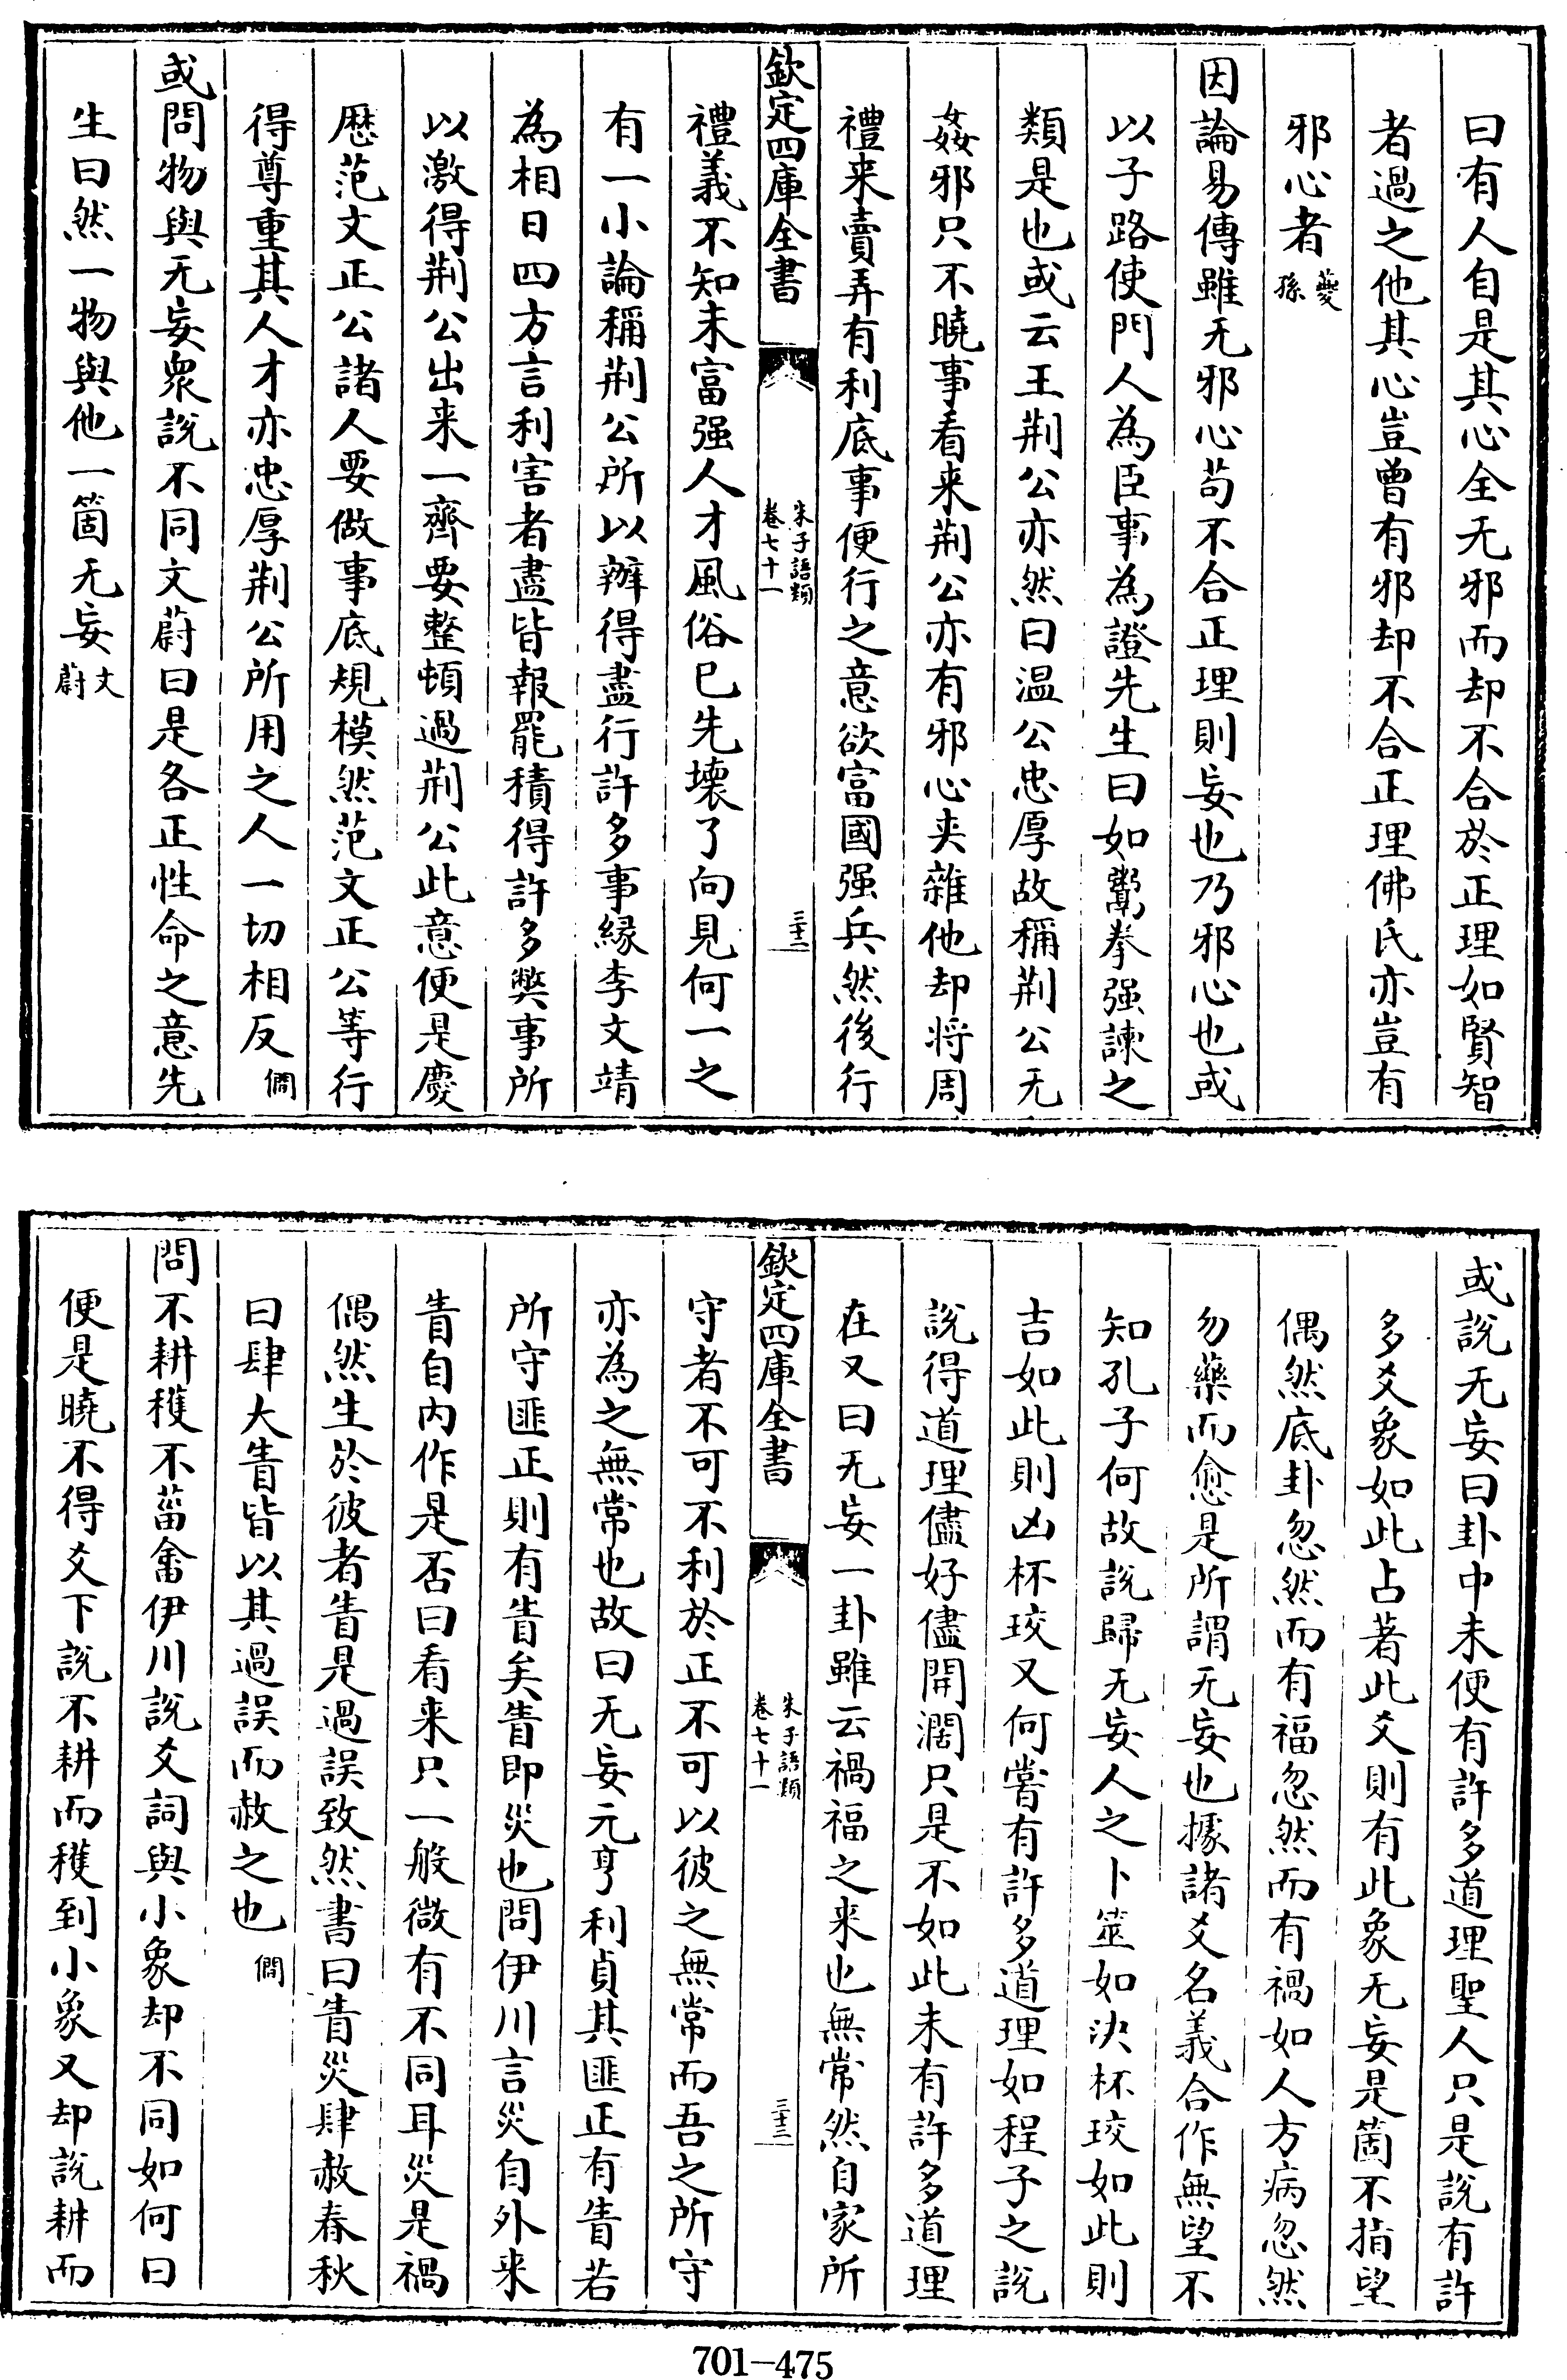 曰有人自是其心全无邪而却不合於正理如賢智
者過之他其心豈曾有邪却不合正理佛氏亦豈有
邪心者夔孫
因論易傳雖无邪心苟不合正理則妄也乃邪心也或
以子路使門人為臣事為證先生曰如鬻拳强諫之
類是也或云王荆公亦然曰温公忠厚故稱荆公无
姦邪只不曉事看来荆公亦有邪心夾雜他却将周
禮来賣弄有利底事便行之意欲富國强兵然後行
欽定四庫全書
朱子語類
卷七十一
三十二
禮義不知未富强人才風俗已先壞了向見何一之
有一小論稱荆公所以辦得盡行許多事緣李文靖
為相日四方言利害者盡皆報罷積得許多弊事所
以激得荆公出来一齊要整頓過荆公此意便是慶
厯范文正公諸人要做事底規模然范文正公等行
得尊重其人才亦忠厚荆公所用之人一切相反僩
或問物與无妄衆說不同文蔚曰是各正性命之意先
生曰然一物與他一箇无妄文蔚
或說无妄曰卦中未便有許多道理聖人只是說有許
多爻象如此占著此爻則有此象无妄是箇不指望
偶然底卦忽然而有福忽然而有禍如人方病忽然
勿藥而愈是所謂无妄也據諸爻名義合作無望不
知孔子何故說歸无妄人之卜筮如決杯珓如此則
吉如此則凶杯珓又何嘗有許多道理如程子之說
說得道理儘好儘開濶只是不如此未有許多道理
在又曰无妄一卦雖云禍福之来也無常然自家所
欽定四庫全書
朱子語類
卷七十一
三十三
守者不可不利於正不可以彼之無常而吾之所守
亦為之無常也故曰无妄元亨利貞其匪正有眚若
所守匪正則有眚矣眚即災也問伊川言災自外来
眚自内作是否曰看来只一般微有不同耳災是禍
偶然生於彼者眚是過誤致然書曰眚災肆赦春秋
曰肆大眚皆以其過誤而赦之也僩
問不耕穫不菑畬伊川說爻詞與小象却不同如何曰
便是曉不得爻下說不耕而穫到小象又却說耕而
701-475